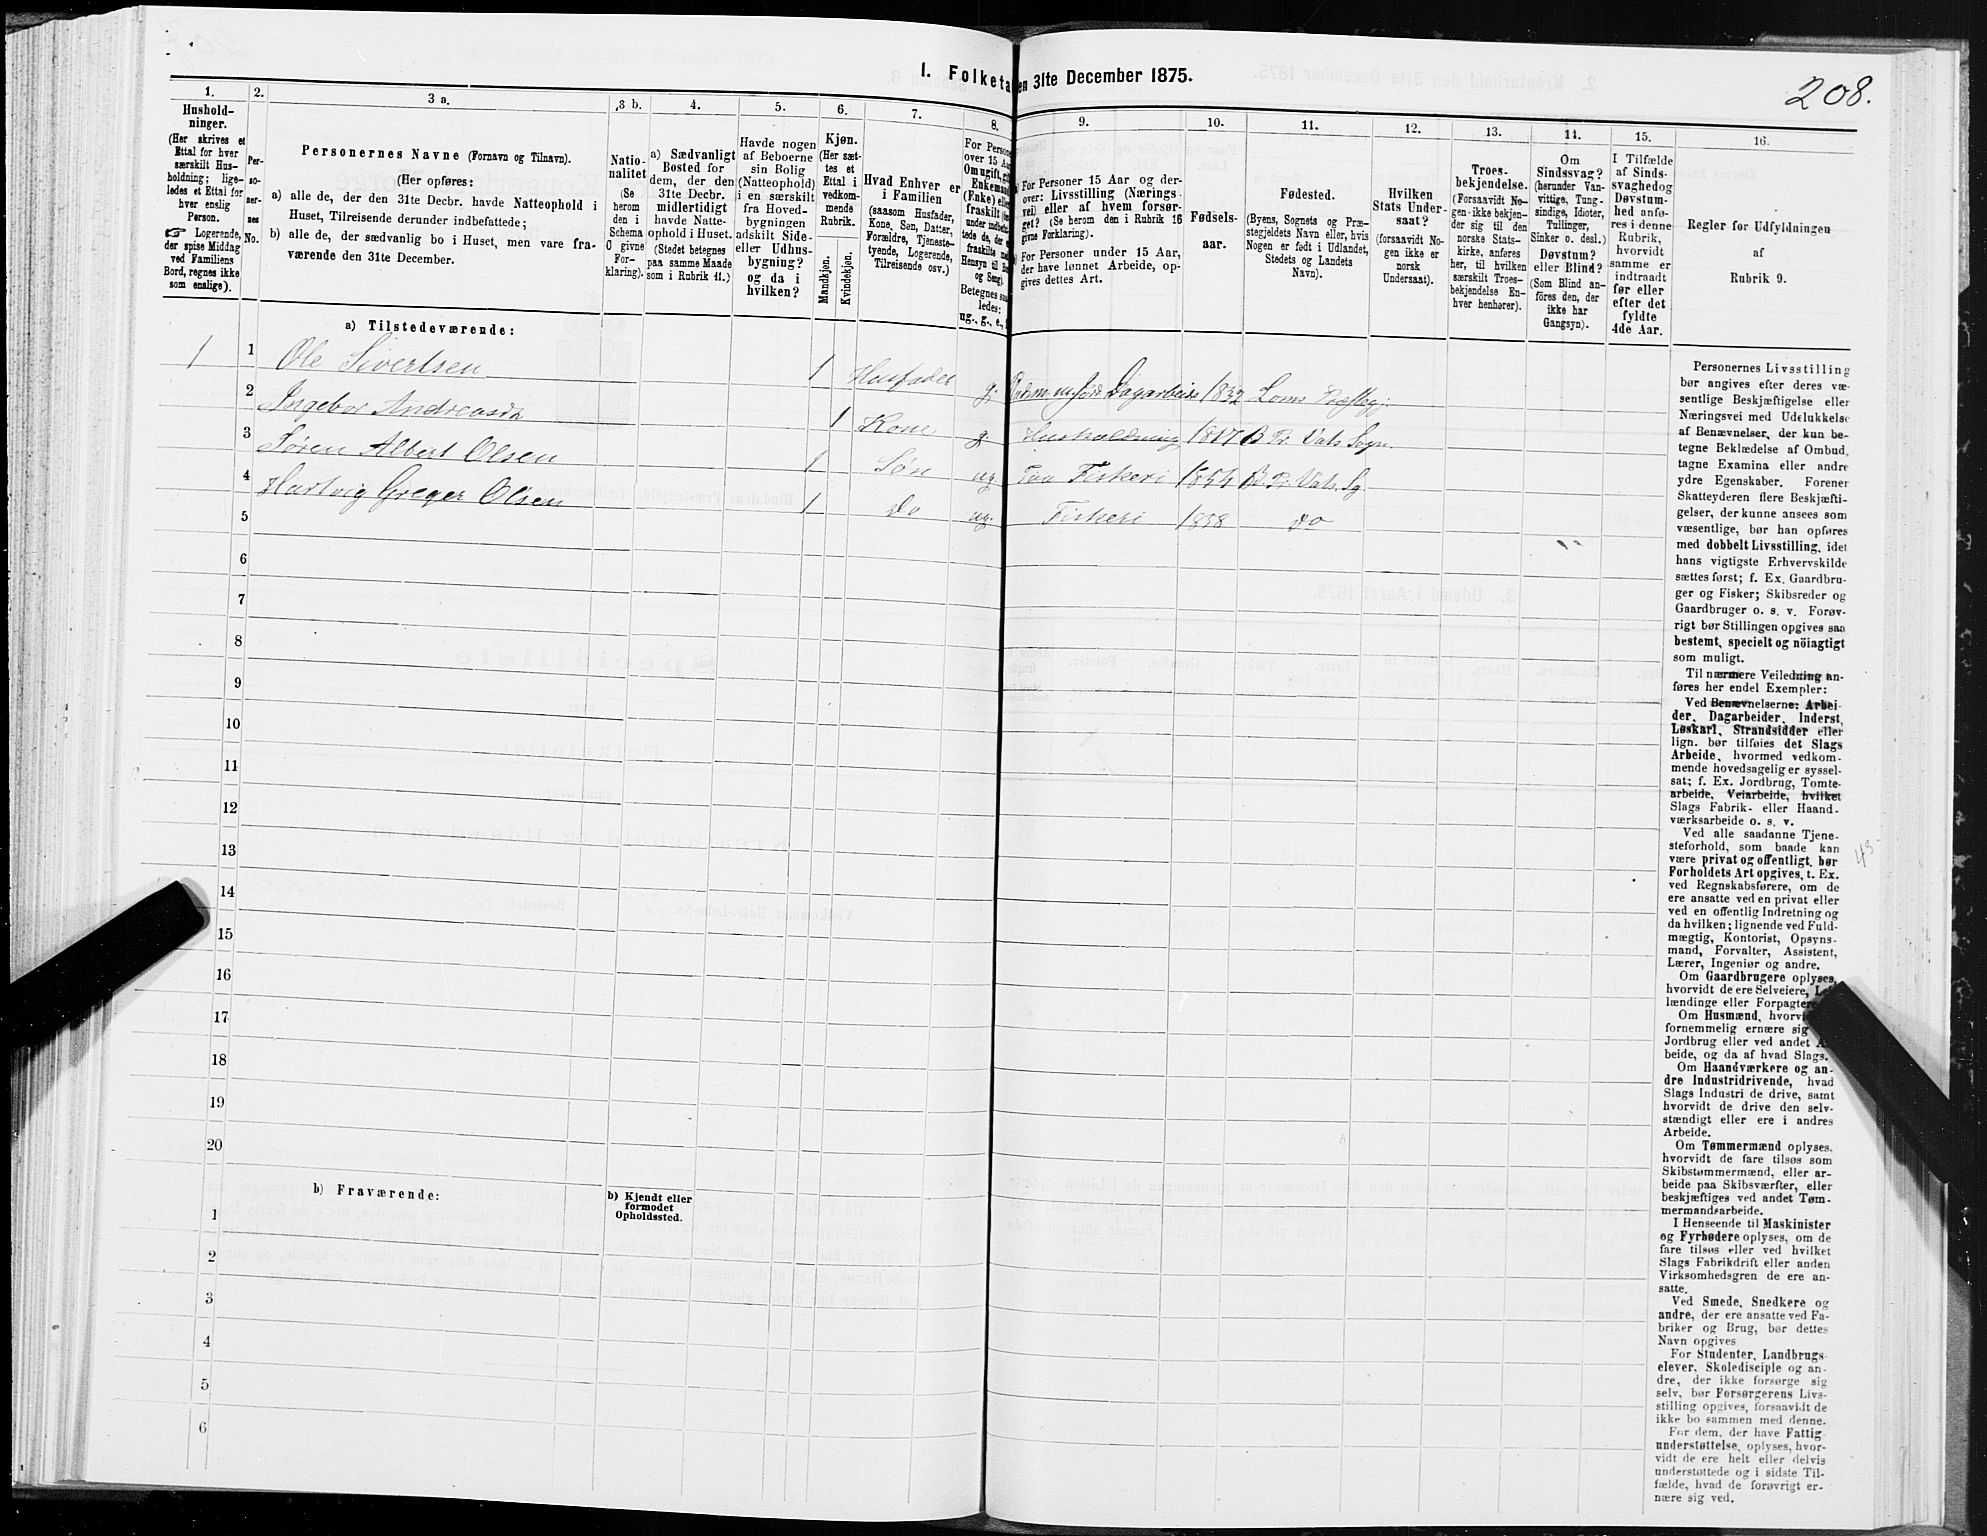 208.
I. Folketa en 31te December 1875.
1. 2. 3 a. 3 b. 4. 5. 6. 7. 8. 9. 10. 11. 12. 13. 14. 15. 16.
Hushold-
ninger.
(Her skrives et
Ettal for hver
særskilt Hus-
holdning; lige-
ledes et Ettal for
hver enslig
Person.
☞ Logerende,
der spise Middag
ved Familiens
Bord, regnes ikke
som enslige).
Per-
so-
ner-
nes
No.
Personernes Navne (Fornavn og Tilnavn).
(Her opføres:
a) alle de, der den 31te Decbr. havde Natteophold i
Huset, Tilreisende derunder indbefattede;
b) alle de, der sædvanlig bo i Huset, men vare fra-
værende den 31te December.
Natio-
nalitet
(Se
herom
den i
Schema
O givne
For-
klaring).
a) Sædvanligt
Bosted for
dem, der den
31te Decbr.
midlertidigt
havde Natte-
ophold i Huset.
(Stedet betegnes
paa samme Maade
som i Rubrik 11.)
Havde nogen
af Beboerne
sin Bolig
(Natteophold)
i en særskilt
fra Hoved-
bygningen
adskilt Side-
eller Udhus-
bygning?
og da i
hvilken?
Kjøn.
(Her sæt-
tes et
Ettal i
vedkom-
mende
Rubrik.
Mandkjøn.
Kvindekjøn.
Hvad Enhver er
i Familien
(saasom Husfader,
Kone, Søn, Datter,
Forældre, Tjeneste-
tyende, Logerende,
Tilreisende osv.)
For Persone
over 15 Aa
Om ugift, gi
Enkemand
(Enke) elle
fraskilt
under indbefat-
tede de, der
fraskilte me
Hensyn til Bo
og Seng).
Betegnes saa
ledes:
ug., g., e.,
For Personer 15 Aar og der-
over: Livsstilling (Nærings-
vei) eller af hvem forsør-
get? (Se herom den i Rubrik 16
givne Forklaring).
For Personer under 15 Aar,
der have lønnet Arbeide, op-
gives dettes Art.
Fødsels-
aar.
Fødested.
(Byens, Sognets og Præ-
stegjeldets Navn eller, hvis
Nogen er født i Udlandet,
Stedets og Landets
Navn).
Hvilken
Stats Under-
saat?
(forsaavidt No-
gen ikke er
norsk
Undersaat).
Troes-
bekjendelse.
(Forsaavidt No-
gen ikke bekjen-
der sig til den
norske Stats-
kirke, anføres
her, til hvilken
særskilt Troes-
bekjendelse En-
hver henhører).
Om
Sindssvag?
(herunder Van-
vittige, Tung-
sindige, Idioter,
Tullinger,
Sinker o. desl.)
Døvstum?
eller Blind?
(Som Blind an-
føres den, der
ikke har
Gangsyn).
I Tilfælde
af Sinds-
svaghedog
Døvstum-
hed anfø-
res i denne
Rubrik,
hvorvidt
samme er
indtraadt
før eller
efter det
fyldte
4de Aar.
Regler for Udfyldningen
af
Rubrik 9.
a) Tilstedeværende:
1 1 Ole Sivertsen 1 Husfader g. Dagarbeide 1832 Loms Præstegj.
2 Ingebor 1 Kone g. Husholdning 1817 B Pr. Vats Sogn.
3 Søren Albert Olsen 1 Søn ug. Paa Fiskeri 1854 B. Pr. Vats Sg.
4 Hartvig Greger Olsen 1 Do ug. Fiskeri 1858 do
5
6
7
8
9
10
11
12
13
14
15
16
17
18
19
20
b) Fraværende:
b) Kjendt eller
formodet
Opholdssted.
1
2
3
4
5
6
Personernes Livsstilling
bør angives efter deres væ-
sentlige Beskjæftigelse eller
Næringsvei med Udelukkelse
af Benævnelser, der kun be-
tegne Beklædelse af Ombud,
tagne Examina eller andre
ydre Egenskaber. Forener
Skatteyderen flere Beskjæfti-
gelser, der kunne ansees som
væsentlige, bør han opføres
med dobbelt Livsstilling, idet
hans vigtigste Erhvervskilde
sættes først; f. Ex. Gaardbru-
ger og Fisker; Skibsreder og
Gaardbruger o. s. v. Forøv-
rigt bør Stillingen opgives saa
bestemt, specielt og nöiagtigt
som muligt.
Til nærmere Veiledning an-
føres her endel Exempler:
Ved Benævnelserne: Arbei-
der, Dagarbeider, Inderst,
Løskarl, Strandsidder eller
lign. bør tilføies det Slags
Arbeide, hvormed vedkom-
mende hovedsagelig er syssel-
sat; f. Ex. Jordbrug, Tomte-
arbeide, Veiarbeide, hvilket
Slags Fabrik- eller Haand-
værksarbeide o. s. v.
Ved alle saadanne Tjene-
steforhold, som baade kan
være privat og offentligt, bør
Forholdets Art opgives, t. Ex.
ved Regnskabsførere, om de
ere ansatte ved en privat eller
ved en offentlig Indretning og
da hvilken; lignende ved Fuld-
mægtig, Kontorist, Opsyns-
mand, Forvalter, Assistent,
Lærer, Ingeniør og andre.
Om Gaardbrugere oplyses,
hvorvidt de ere Selveiere, Lei
lændinge eller Forpagtere.
Om Husmænd, hvorvi
fornemmelig ernære sig
Jordbrug eller ved andet A
beide, og da af hvad Slags.
Om Haandværkere og an-
dre Industridrivende, hvad
Slags Industri de drive, samt
hvorvidt de drive den selv-
stændigt eller ere i andres
Arbeide.
Om Tømmermænd oplyses,
hvorvidt de fare tilsøs som
Skibstømmermænd, eller ar-
beide paa Skibsværfter, eller
beskjæftiges ved andet Tøm-
mermandsarbeide.
I Henseende til Maskinister
og Fyrbødere oplyses, om de
fare tilsøs eller ved hvilket
Slags Fabrikdrift eller anden
Virksomhedsgren de ere an-
satte.
Ved Smede, Snedkere og
andre, der ere ansatte ved Fa-
briker og Brug, bør dettes
Navn opgives
For Studenter, Landbrugs-
elever, Skoledisciple og an-
dre, der ikke forsørge sig
selv, bør Forsørgerens Livs-
stilling opgives, forsaavidt de
ikke bo sammen med denne.
For dem, der have Fattig-
understøttelse, oplyses, hvor-
vidt de ere helt eller delvis
understøttede og i sidste Til-
fælde, hvad de forøvrigt er-
nære sig ved.